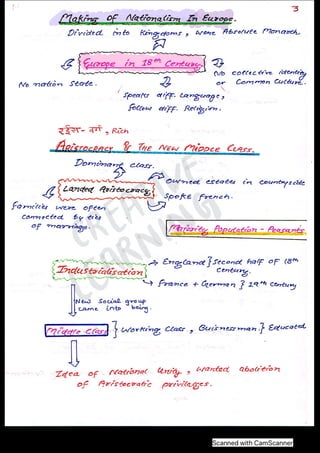 3
Making of Nationalism In Europe.
Divided into Kingdoms, were Absolute Monarch.
Europe in 18th Century
No nation state.
No collective identity
or Common Culture.
Speaks diff. Language,
follow diff. Religion.
रईस- वर्ग, Rich
ARISTOCRACY & THE NEW MIDDLE CLASS.
Dominant class.
Landed Aristocracy
Owned estates in countryside
Spoke french.
families were often
connected by ties
of marriage.
Majority Population - Peasants
CREATIVE
LEARNING
Industrialisation
England } Second half OF 18th
Century.
france + German } 19th Century
New Social group
came into being.
Middle Class } Working Class, Buisnessman } Educated
Idea of National Unity, wanted abolition
of Aristocratic privileges.
Scanned with CamScanner